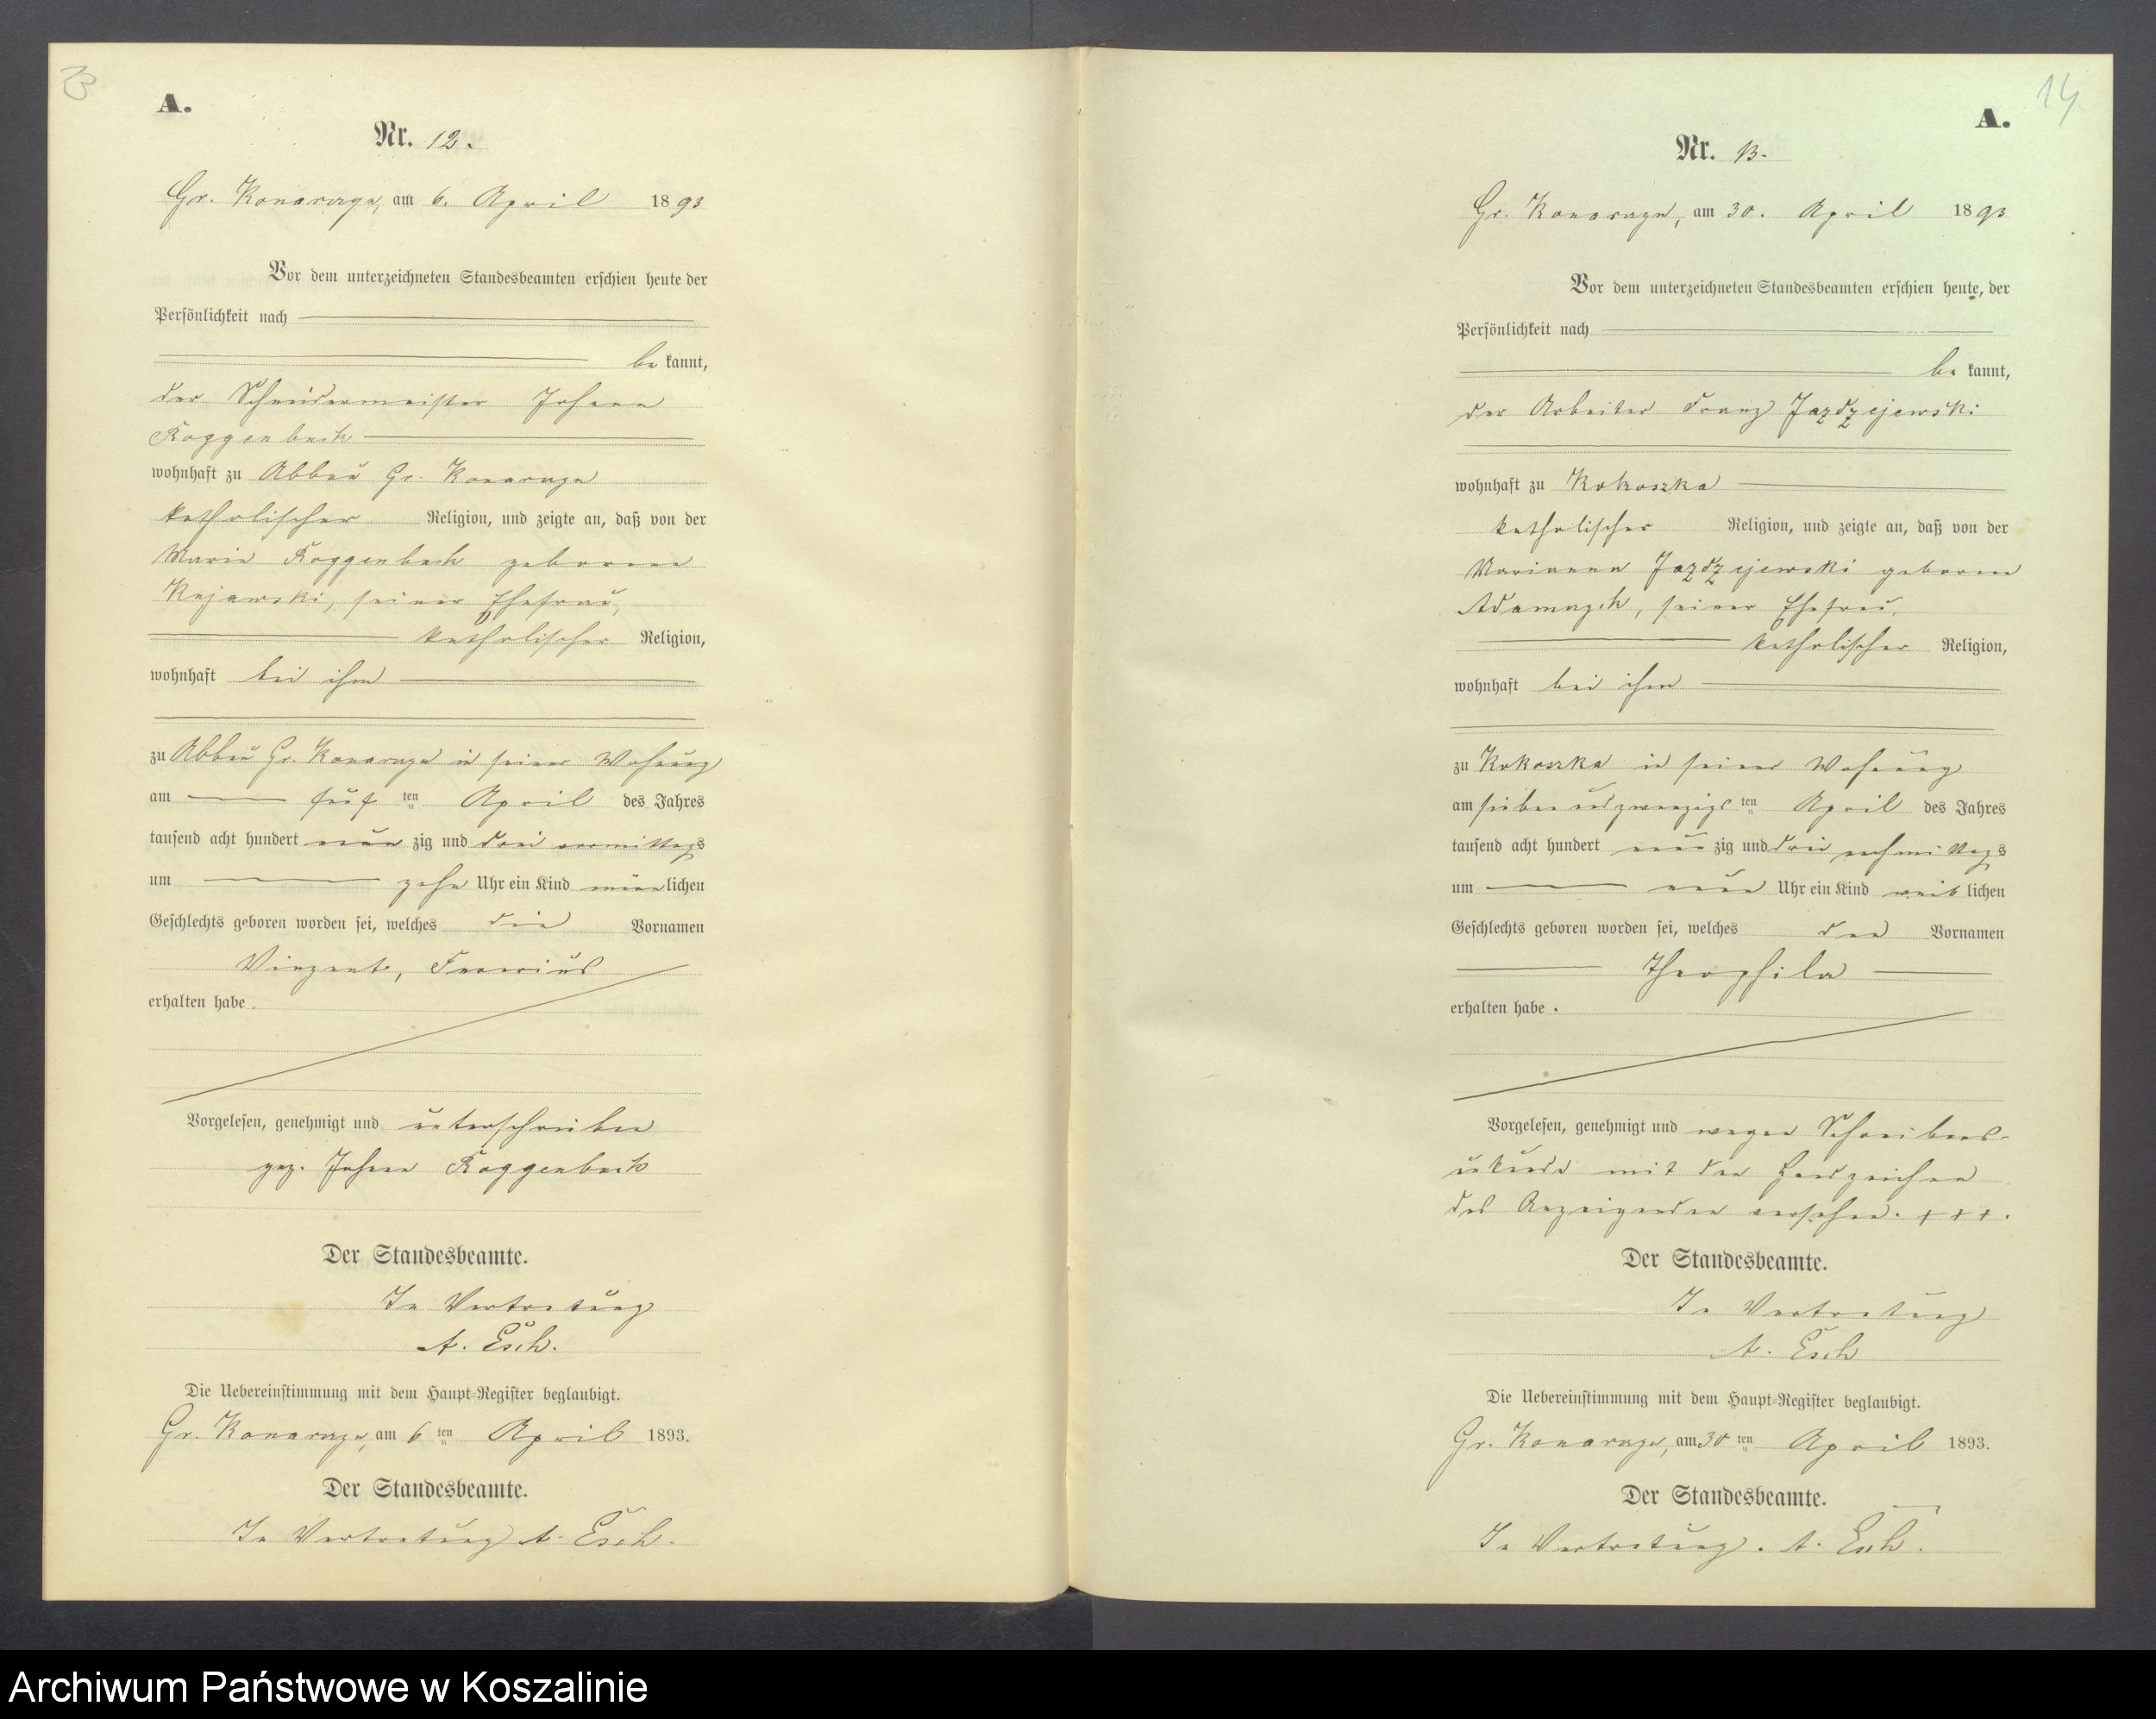 13
A.
Nr. 12.
Gr. Konarczyn, am 6. April 1893
Vor dem unterzeichneten Standesbeamten erschien heute der
Persönlichkeit nach
be kannt,
der Schneidermeister Johann
Roggenbuck
wohnhaft zu Abbau Gr. Konarczyn
katholischer Religion, und zeigte an, daß von der
Maria Roggenbuck geborene
Kujawski, seiner Ehefrau,
katholischer Religion,
wohnhaft bei ihm
zu Abbau Gr. Konarczyn in seiner Wohnung
am fünf ten April des Jahres
tausend acht hundert neun zig und drei vormittags
um zehn Uhr ein Kind männlichen
Geschlechts geboren worden sei, welches die Vornamen
Vinzent,
erhalten habe.
Vorgelesen, genehmigt und unterschrieben
gez. Johann Roggenbuck
Der Standesbeamte.
In Vertretung
A. Esch.
Die Uebereinstimmung mit dem Haupt-Register beglaubigt.
Gr. Konarczyn, am 6 ten April 1893.
Der Standesbeamte.
In Vertretung A. Esch.
14
A.
Nr. 13.
Gr. Konarczyn, am 30. April 1893
Vor dem unterzeichneten Standesbeamten erschien heute, der
Persönlichkeit nach
be kannt,
der Arbeiter Franz Jazdzejewski
wohnhaft zu Kokoszka
katholischer Religion, und zeigte an, daß von der
Marianna Jazdzejewski geborene
Adamczyk, seiner Ehefrau,
katholischer Religion,
wohnhaft bei ihm
zu Kokoszka in seiner Wohnung
am sieben und zwanzigs ten April des Jahres
tausend acht hundert neun zig und drei nachmittags
um neun Uhr ein Kind weib lichen
Geschlechts geboren worden sei, welches den Vornamen
Theophila
erhalten habe.
Vorgelesen, genehmigt und wegen Schreibens-
unkunde mit den Handzeichen
des Anzeigenden versehen. +++.
Der Standesbeamte.
In Vertretung
A. Esch
Die Uebereinstimmung mit dem Haupt-Register beglaubigt.
Gr. Konarczyn, am 30 ten April 1893.
Der Standesbeamte.
In Vertretung. A. Esch.
Archiwum Państwowe w Koszalinie